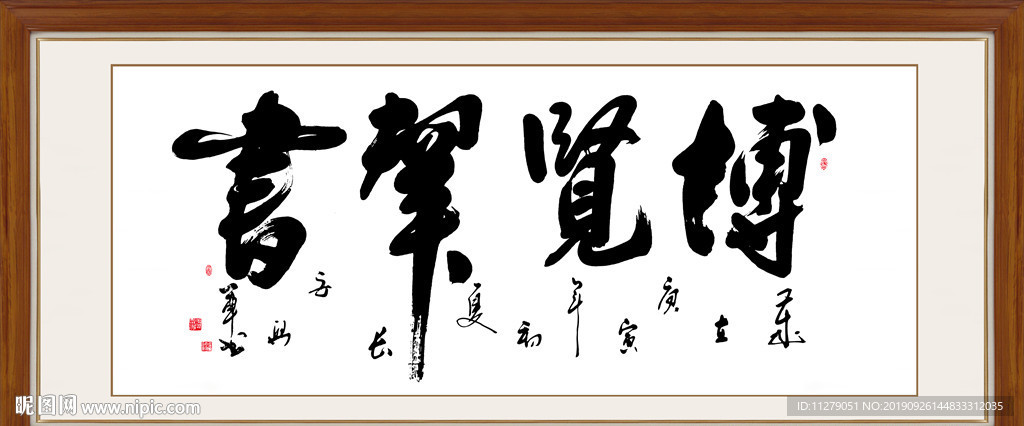 博覽羣書
歲在庚寅年初夏长安
昵图网 www.nipic.com
ID:11279051 NO:20190926144833312035